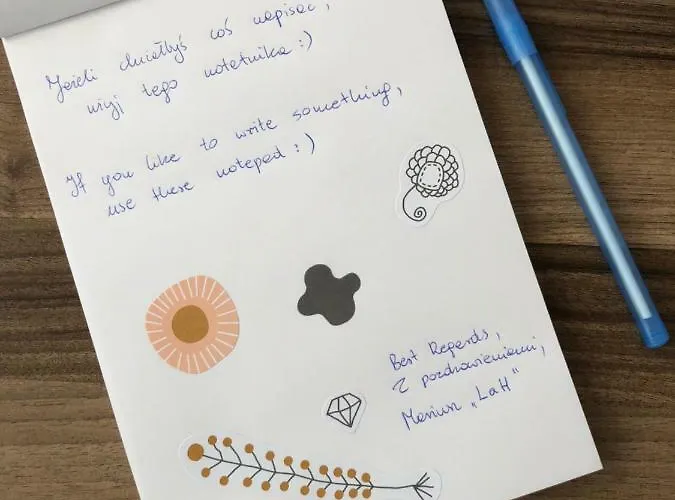 Jeżeli chciałbyś coś napisać,
użyj tego notatnika :)
If you like to write something,
use these notepad :)
Best Regards,
Z pozdrowieniami,
Mariusz „LaH"